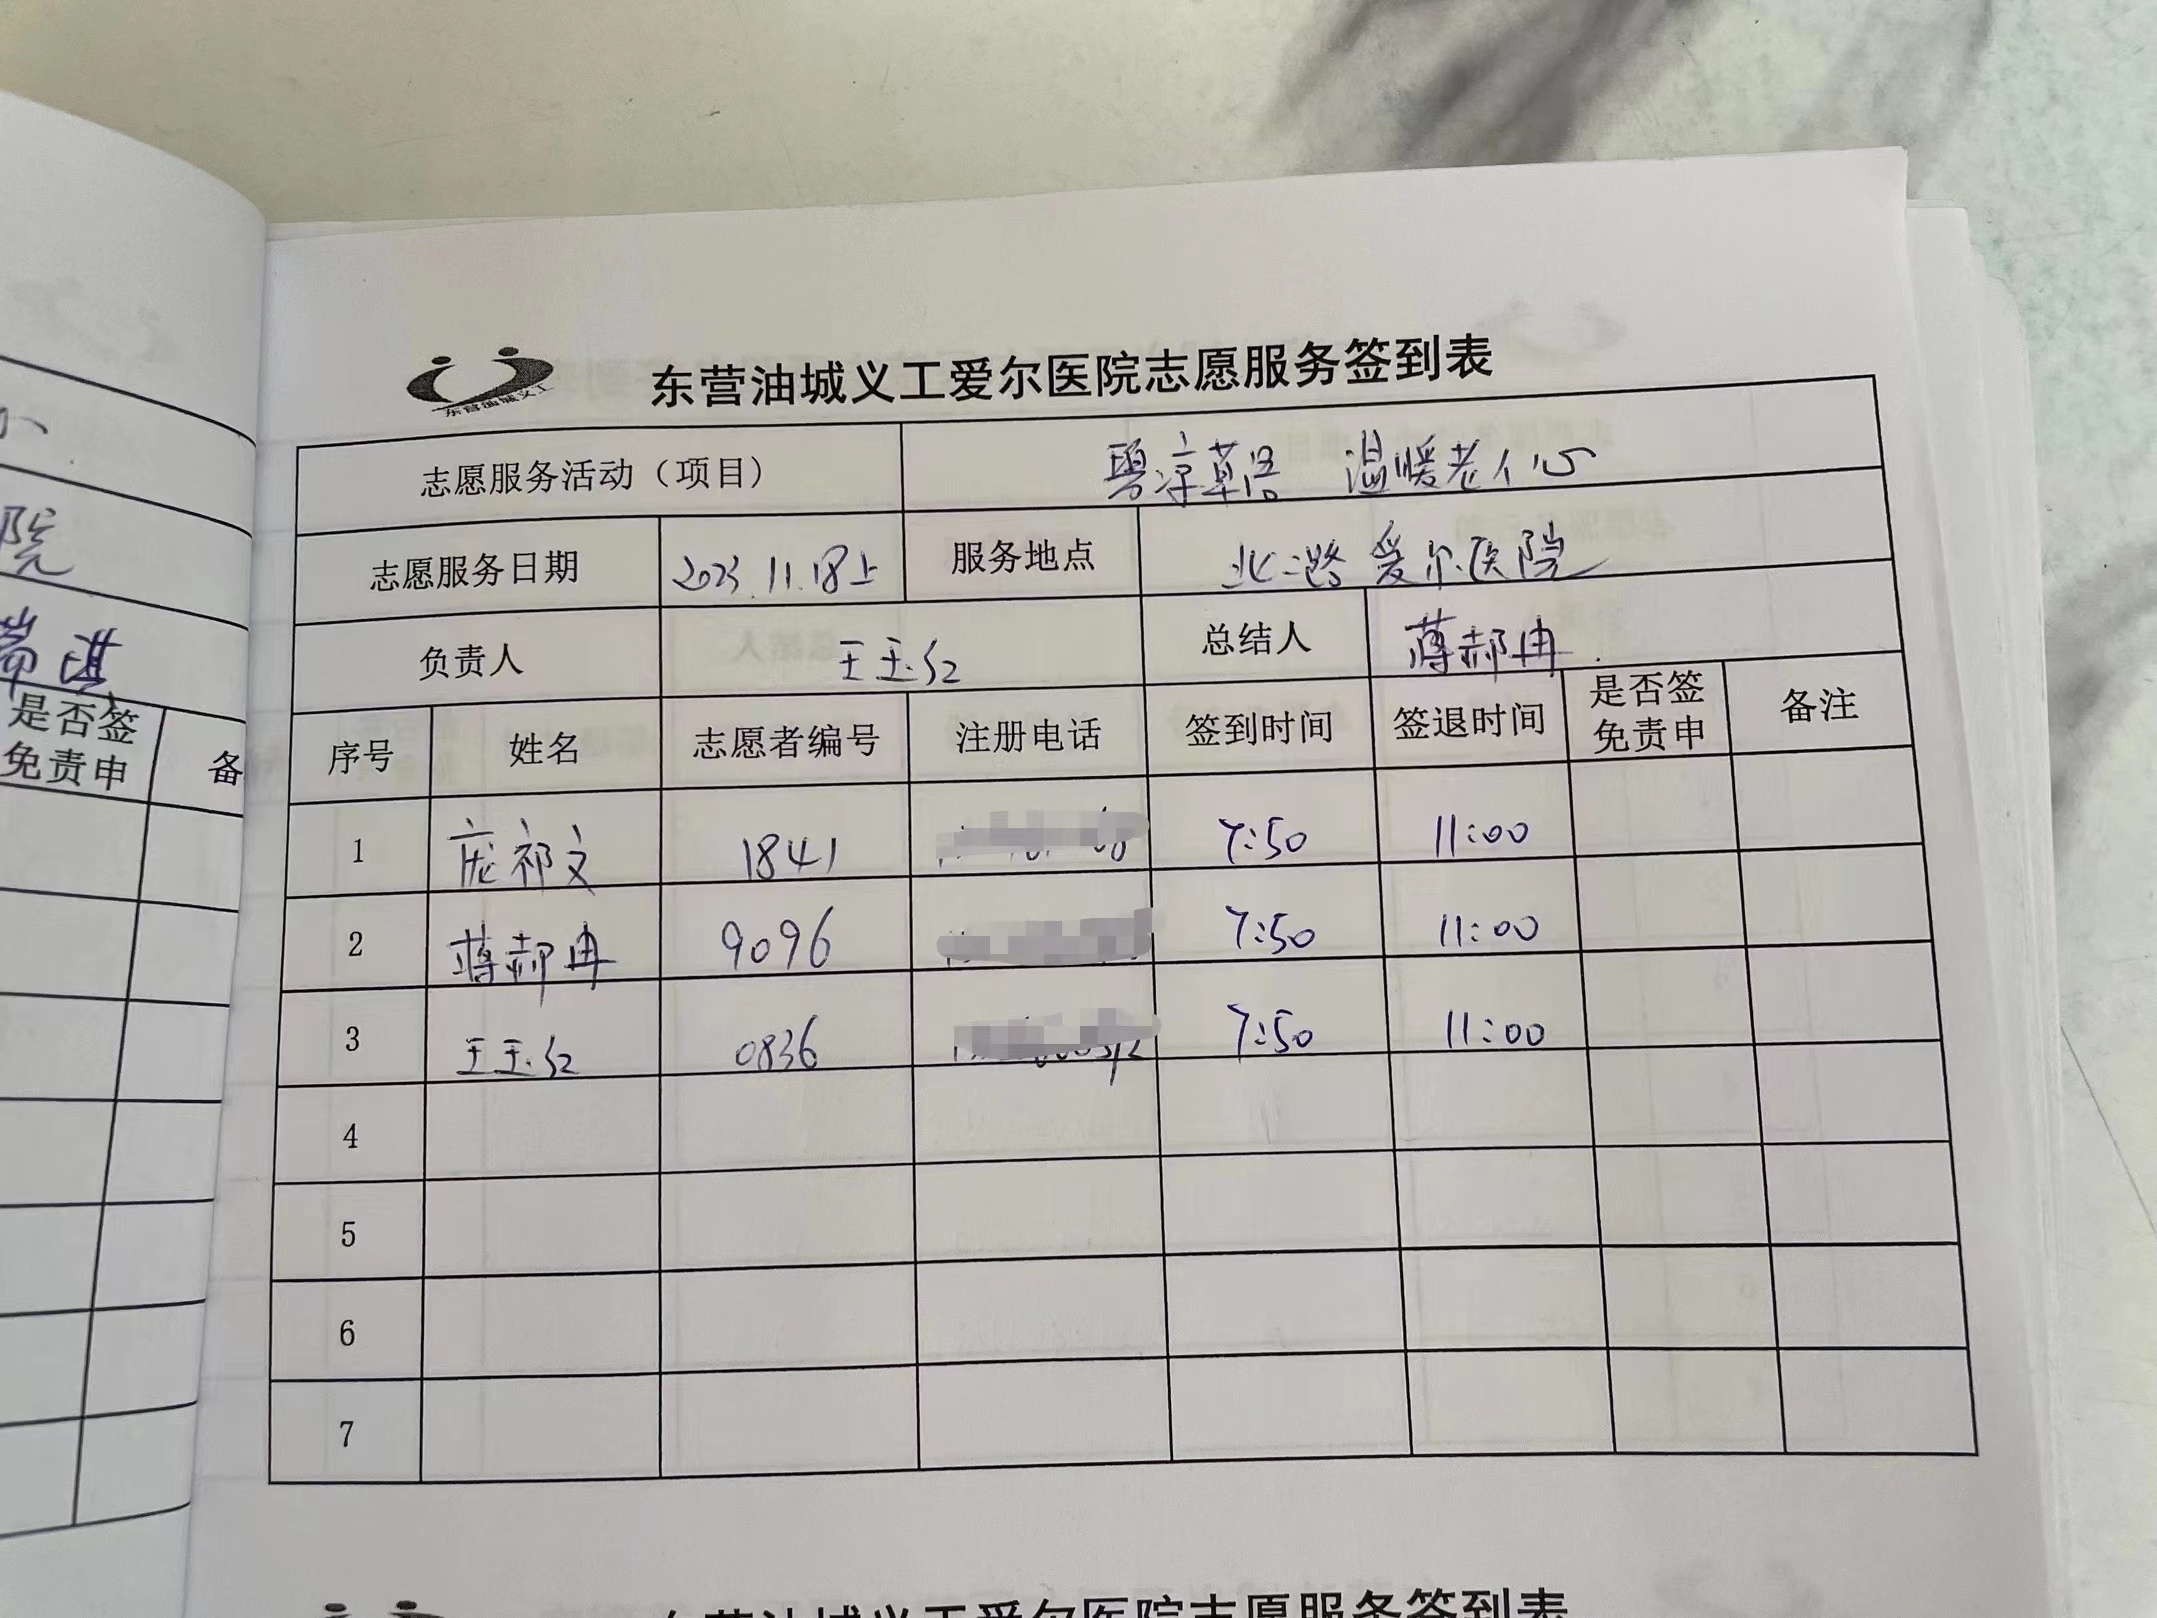 院
是否签
免责申
备
东营油城义工
东营油城义工爱尔医院志愿服务签到表
志愿服务活动（项目） 温暖老人心
志愿服务日期 2023.11.18上 服务地点 北二路爱尔医院
负责人 王玉红 总结人 蒋郝冉
序号 姓名 志愿者编号 注册电话 签到时间 签退时间 是否签免责申 备注
1 庞祁文 1841 7:50 11:00
2 蒋郝冉 9096 7:50 11:00
3 王玉红 0836 7:50 11:00
4
5
6
7
东营油城义工爱尔医院志愿服务签到表